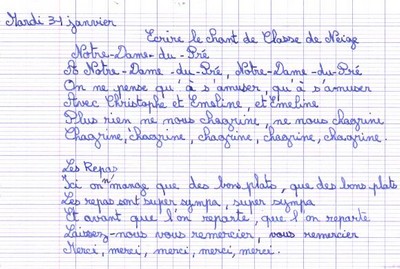 Mardi 31 janvier
Ecrire le chant de Classe de Neige
Notre-Dame-du-Pré
A Notre-Dame-du-Pré, Notre-Dame-du-Pré
On ne pense qu'à s'amuser, qu'à s'amuser
Avec Christophe et Emeline, et Emeline
Plus rien ne nous chagrine, ne nous chagrine
Chagrine, chagrine, chagrine, chagrine, chagrine.
Les Repas
Ici on n'mange que des bons plats, que des bons plats
Les repas sont super sympa, super sympa
Et avant que l'on reparte, que l'on reparte
Laissez-nous vous remercier, vous remercier
Merci, merci, merci, merci, merci.